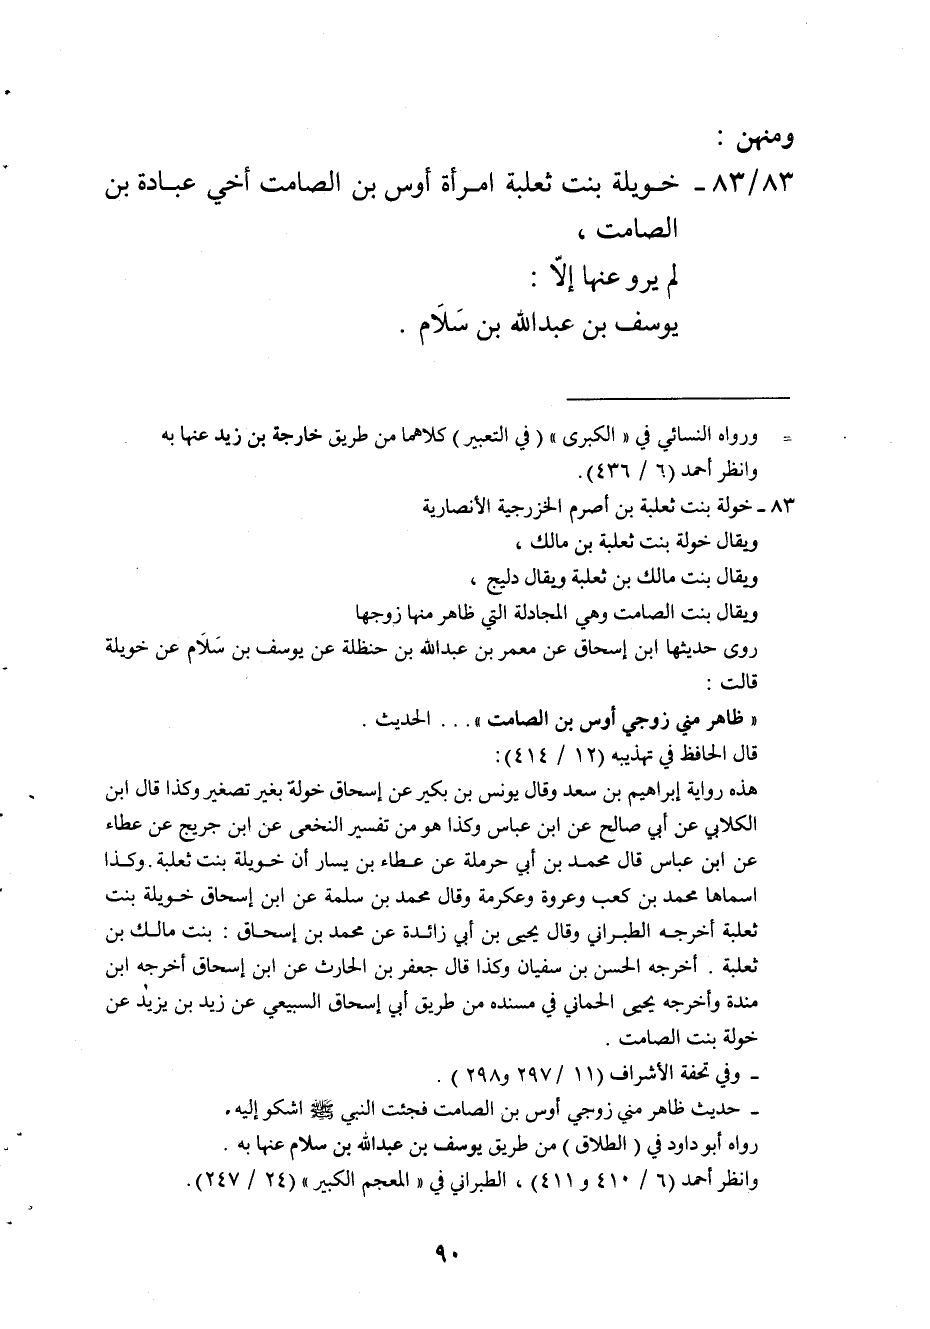 ومنهن :
٨٣/٨٣ - خويلة بنت ثعلبة امرأة أوس بن الصامت أخي عبادة بن
الصامت ،
لم يرو عنها إلّا :
يوسف بن عبدالله بن سَلَام .
= ورواه النسائي في « الكبرى » ( في التعبير ) كلاهما من طريق خارجة بن زيد عنها به
وانظر أحمد (٦ / ٤٣٦).
٨٣ - خولة بنت ثعلبة بن أصرم الخزرجية الأنصارية
ويقال خولة بنت ثعلبة بن مالك ،
ويقال بنت مالك بن ثعلبة ويقال دليج ،
ويقال بنت الصامت وهي المجادلة التي ظاهر منها زوجها
روى حديثها ابن إسحاق عن معمر بن عبدالله بن حنظلة عن يوسف بن سَلَام عن خويلة
قالت :
« ظاهر مني زوجي أوس بن الصامت » . . . الحديث .
قال الحافظ في تهذيبه (١٢ / ٤١٤):
هذه رواية إبراهيم بن سعد وقال يونس بن بكير عن إسحاق خولة بغير تصغير وكذا قال ابن
الكلابي عن أبي صالح عن ابن عباس وكذا هو من تفسير النخعى عن ابن جريج عن عطاء
عن ابن عباس قال محمد بن أبي حرملة عن عطاء بن يسار أن خويلة بنت ثعلبة . وكذا
اسماها محمد بن كعب وعروة وعكرمة وقال محمد بن سلمة عن ابن إسحاق خويلة بنت
ثعلبة أخرجه الطبراني وقال يحيى بن أبي زائدة عن محمد بن إسحاق : بنت مالك بن
ثعلبة . أخرجه الحسن بن سفيان وكذا قال جعفر بن الحارث عن ابن إسحاق أخرجه ابن
مندة وأخرجه يحيى الحماني في مسنده من طريق أبي إسحاق السبيعي عن زيد بن يزيد عن
خولة بنت الصامت .
- وفي تحفة الأشراف (١١ / ٢٩٧ و٢٩٨ ) .
- حديث ظاهر مني زوجي أوس بن الصامت فجئت النبي ﷺ اشكو إليه .
رواه أبو داود في ( الطلاق ) من طريق يوسف بن عبدالله بن سلام عنها به .
وانظر أحمد (٦ / ٤١٠ و ٤١١) ، الطبراني في « المعجم الكبير » (٢٤ / ٢٤٧).
٩٠